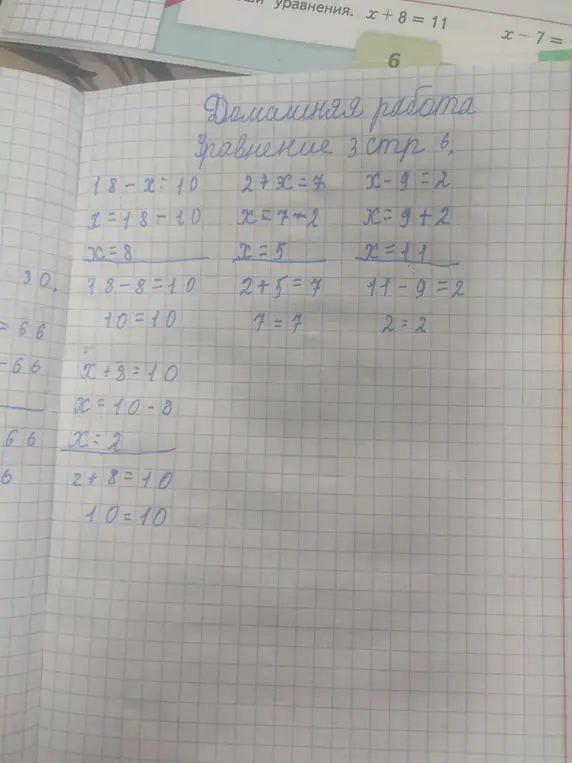 уравнения. x + 8 = 11
x − 7 =
6
Домашняя работа
Уравнение 3 стр 6.
18 - x = 10 2 + x = 7 x - 9 = 2
x = 18 - 10 x = 7 - 2 x = 9 + 2
x = 8 x = 5 x = 11
18 - 8 = 10 2 + 5 = 7 11 - 9 = 2
10 = 10 7 = 7 2 = 2
x + 8 = 10
x = 10 - 8
x = 2
2 + 8 = 10
10 = 10
30.
= 66
- 66
66
6